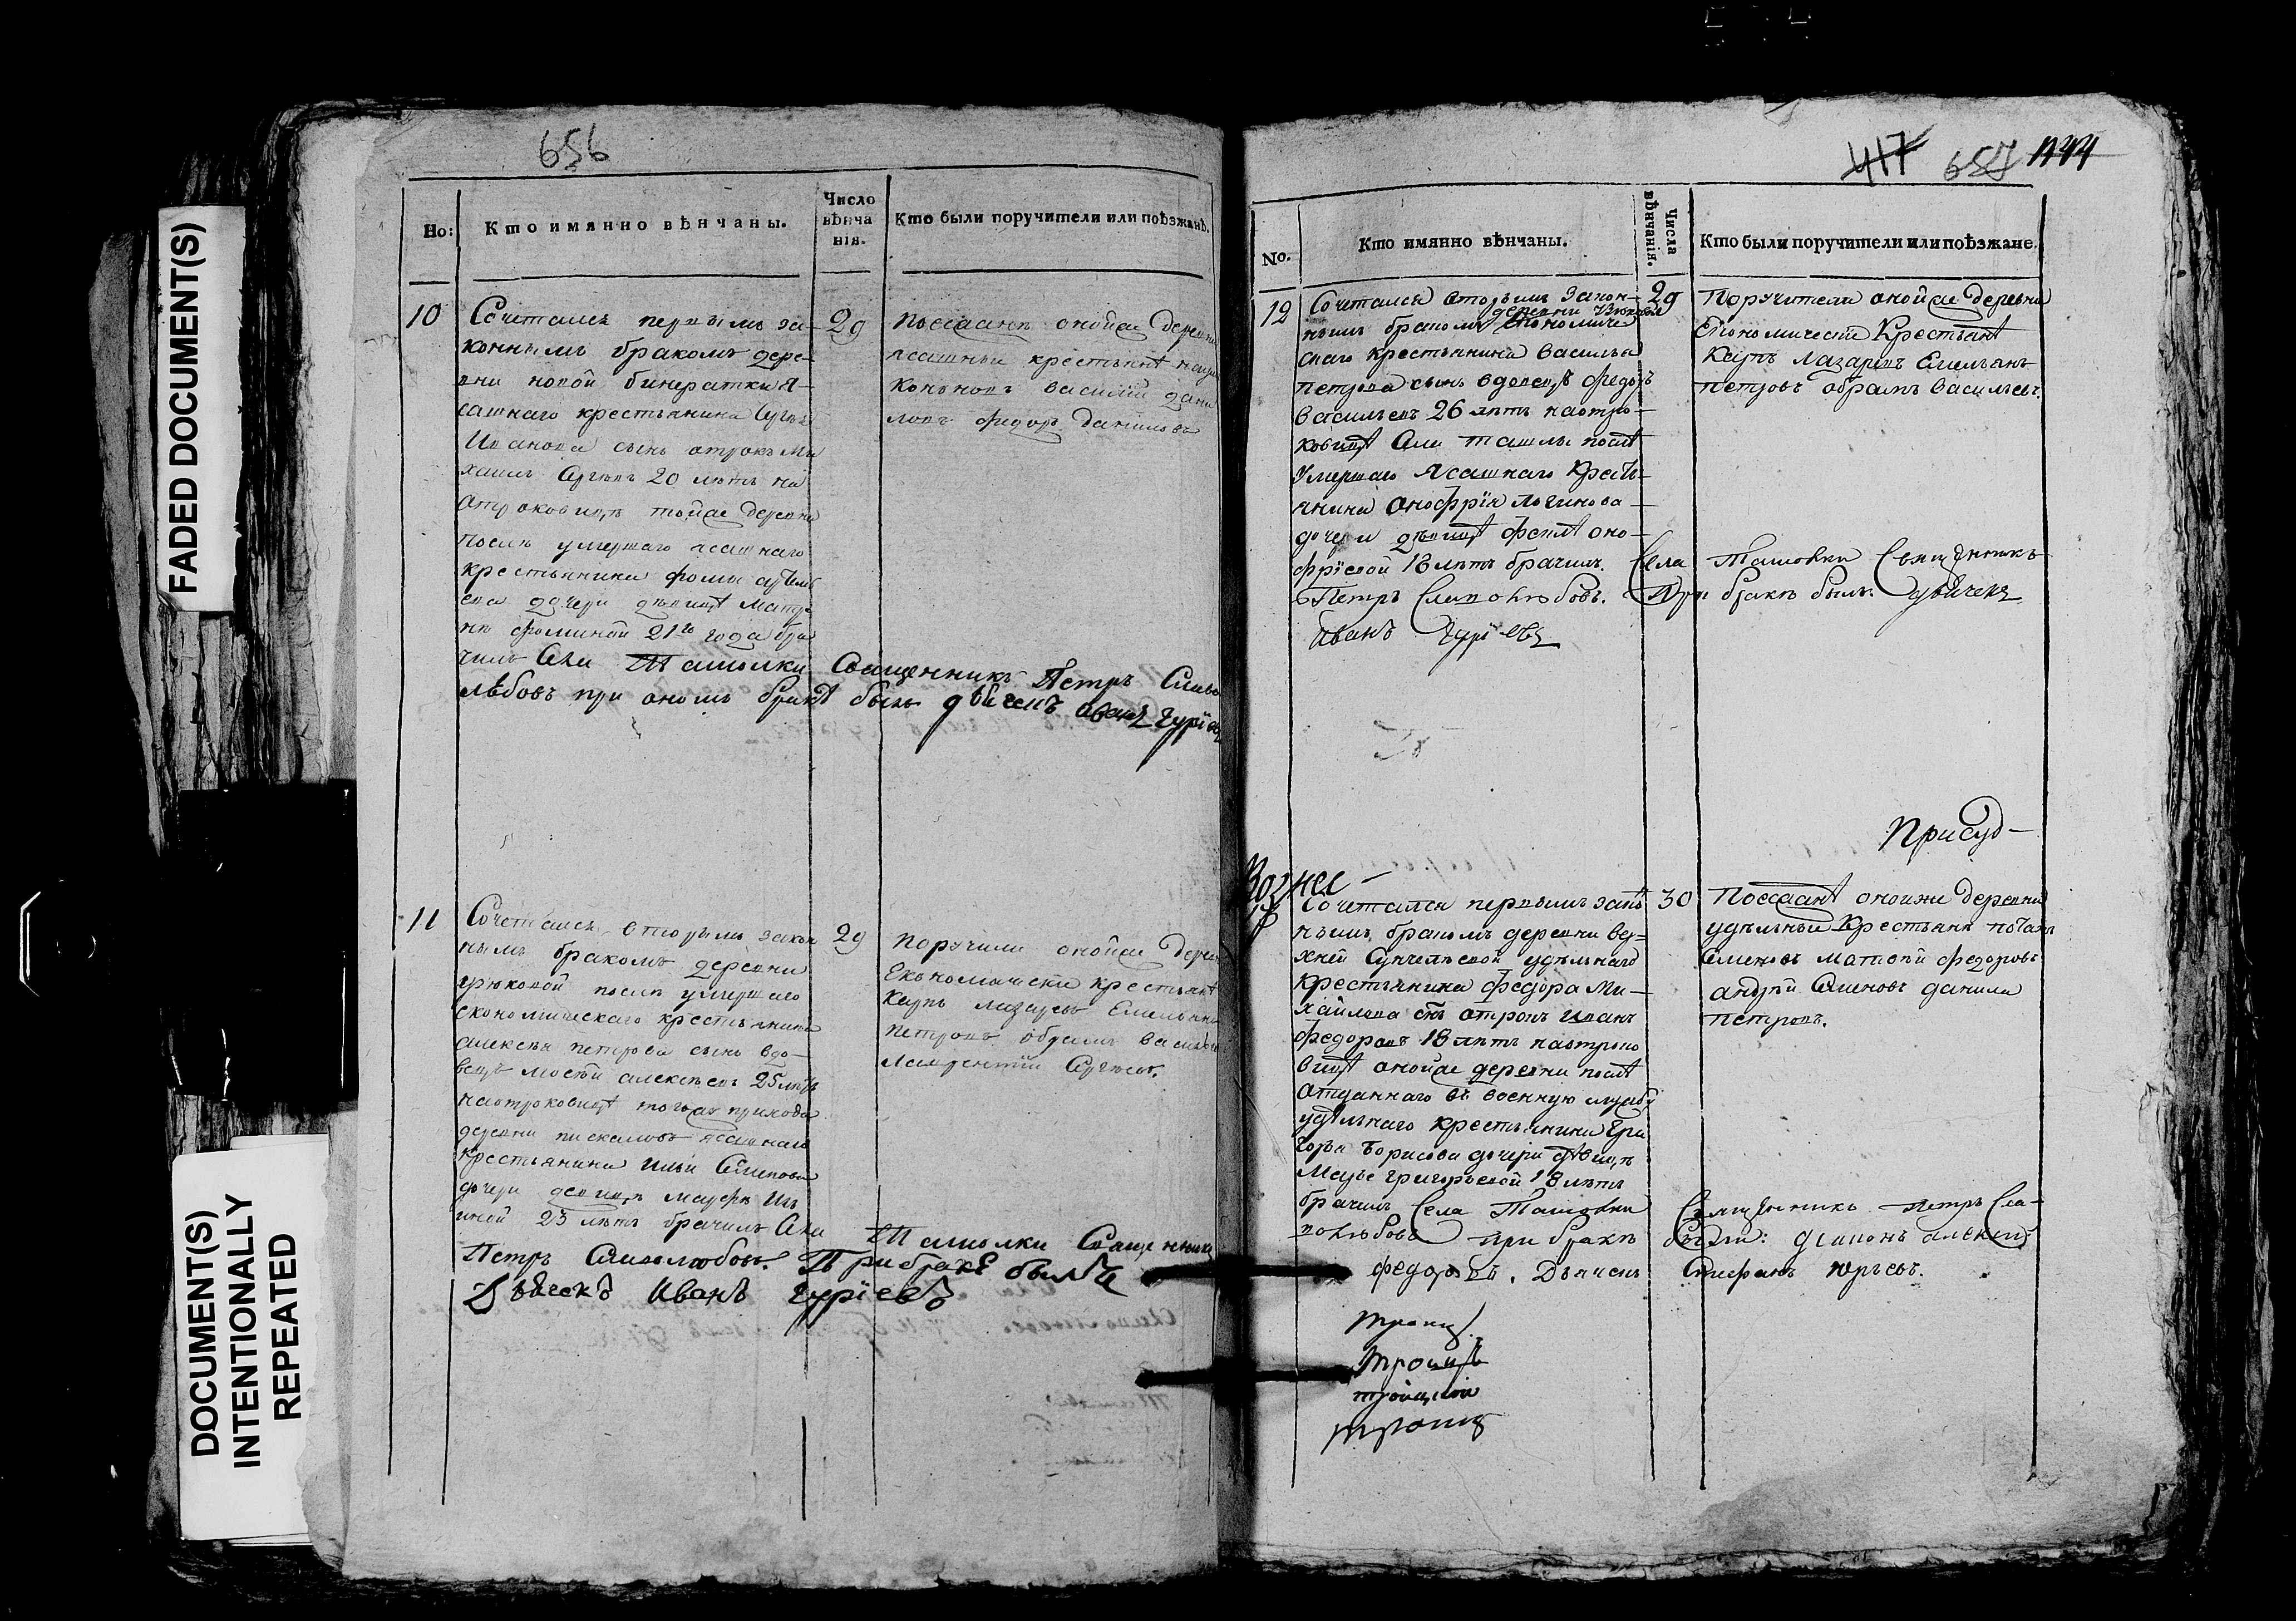 FADED DOCUMENT(S)
DOCUMENT(S)
INTENTIONALLY
REPEATED
656
Но:
Кто имянно вѣнчаны.
Число
вѣнча
нія.
Кто были поручители или поѣзжанѣ.
10
Сочетался первымъ за-
коннымъ бракомъ дере-
вни новой бинератки я-
сашнаго крестьянина
Иванова сынъ отрокъ Ми
хаилъ Сергѣевъ 20 лѣтъ на
отроковицѣ тойже деревни
послѣ умершаго ясашнаго
крестьянина фомы
дочери девицѣ
фоминой 21го года бра
чилъ Села Ташолки Священникъ Петръ Славо
любовъ при ономъ бракѣ былъ дьячекъ иванъ гурiевъ
29
Поезжанѣ онойже деревни
ясашныи крестьянѣ
василий дани
ловъ федоръ даниловъ
11
Сочетался вторымъ закон
нымъ бракомъ деревни
послѣ умершаго
економическаго крестьянина
алексѣя петрова сынъ вдо-
вецъ алексѣевъ 25 лѣтъ
наотроковицѣ тогоже прихода
деревни ясашнаго
крестьянина ильи Семенова
дочери девицѣ марфѣ Иль
иной 23 лѣтъ брачилъ Села Ташолки Священникъ
Петръ Славолюбовъ. При бракѣ былъ
Дьячекъ Иванъ гурiевъ
29
поручили онойже деревни
Економически крестьянѣ
карпъ лазаревъ Емельянъ
петровъ абрамъ василь
лаврентiй Сергѣевъ.
417 657
No.
Кто имянно вѣнчаны.
Числа
вѣнчанія.
Кто были поручители или поѣзжане.
12
Сочетался вторымъ закон-
деревни
нымъ бракомъ економиче
скаго крестьянина василья
петрова сынъ вдовецъ федоръ
васильевъ 26 лѣтъ наотро-
ковицѣ Села ташлы послѣ
умершаго Ясашнаго Кресть-
янина Онофрiя логинова
дочери девицѣ феклѣ оно-
фрiевой 18 лѣтъ брачилъ. Села Ташовки Священникъ
Петръ Славолюбовъ. При бракѣ былъ. дьячекъ
иванъ гурiевъ
29
Поручители онойже деревни
Економически Крестьянѣ
Карпъ лазаревъ Емельянъ
петровъ абрамъ васильевъ.
Присуд-
Вознес-
13
Сочетался первымъ закон
нымъ бракомъ деревни вер=
хней удѣльнаго
крестьянина федора Ми-
хайлова снъ отрокъ иванъ
федоровъ 18 лѣтъ наотроко
вицѣ онойже деревни послѣ
отданнаго въ военную службу
удѣльнаго крестьянина Гри
горья борисова дочери девицѣ
Марье григорьевой 18 лѣтъ
брачилъ Села Ташовки Священникъ петръ Сла-
волюбовъ при бракѣ были: дiаконъ алексей
федоровъ. Дьячекъ Стефанъ юрьевъ.
30
Поезжанѣ оноижи деревни
удѣльныи Крестьянѣ потапъ
Семеновъ матвей федоровъ
андрѣй Семеновъ данила
петровъ.
троиц
троицъ
тройцкой
троиц